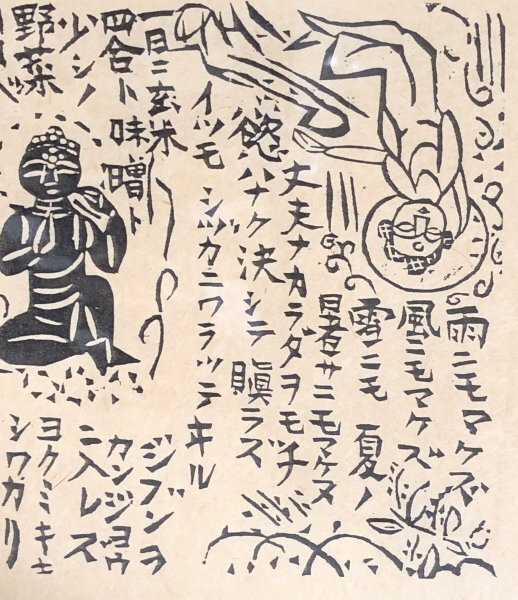 雨ニモマケズ
風ニモマケズ
雪ニモ夏ノ
暑サニモマケヌ
丈夫ナカラダヲモチ
慾ハナク決シテ瞋ラズ
イツモシヅカニワラッテヰル
一日ニ玄米
四合ト味噌ト
少シノ
野菜
ジブンヲ
カンジョウ
ニ入レズ
ヨクミキキ
シワカリ